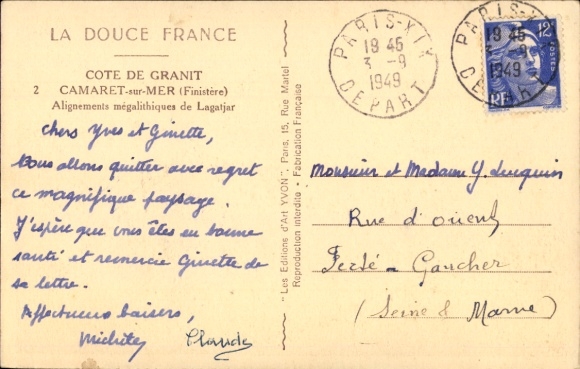 LA DOUCE FRANCE
COTE DE GRANIT
2 CAMARET-sur-MER (Finistère)
Alignements mégalithiques de Lagatjar
Chers Yves et Ginette,
Nous allons quitter avec regret
ce magnifique paysage.
J'espère que vous êtes en bonne
santé et remercie Ginette de
sa lettre.
Affectueux baisers,
Claude
"Les Editions d'Art YVON", Paris, 15, Rue Martel
Reproduction interdite - Fabrication Française
PARIS-XIV
18 45
3 -9
1949
DEPART
PARIS-XIV
18 45
3 -9
1949
DEPART
12F
POSTES
RF
Monsieur et Madame Y.
Rue d'Orient
Ferté-Gaucher
(Seine & Marne)